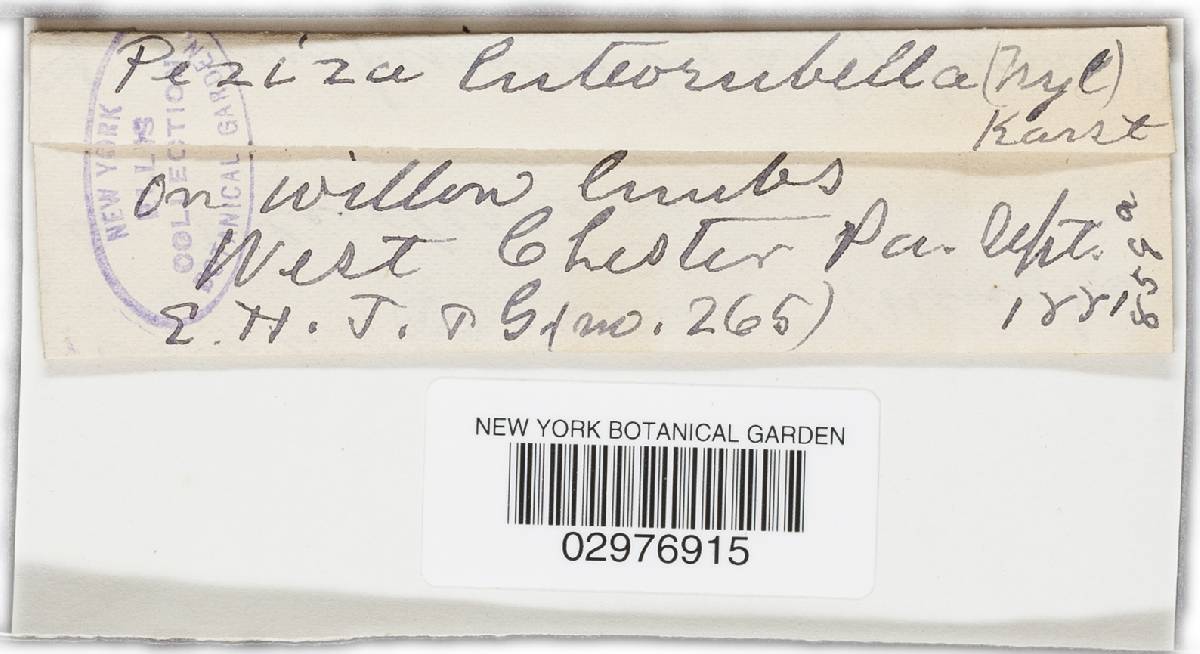 Peziza luteorubella (Nyl)
Karst
on willow limbs
West Chester Pa. Sept.
1881
E. H. J. & G. (no. 265)
NEW YORK
ELLIS
COLLECTION
BOTANICAL GARDEN
NEW YORK BOTANICAL GARDEN
02976915